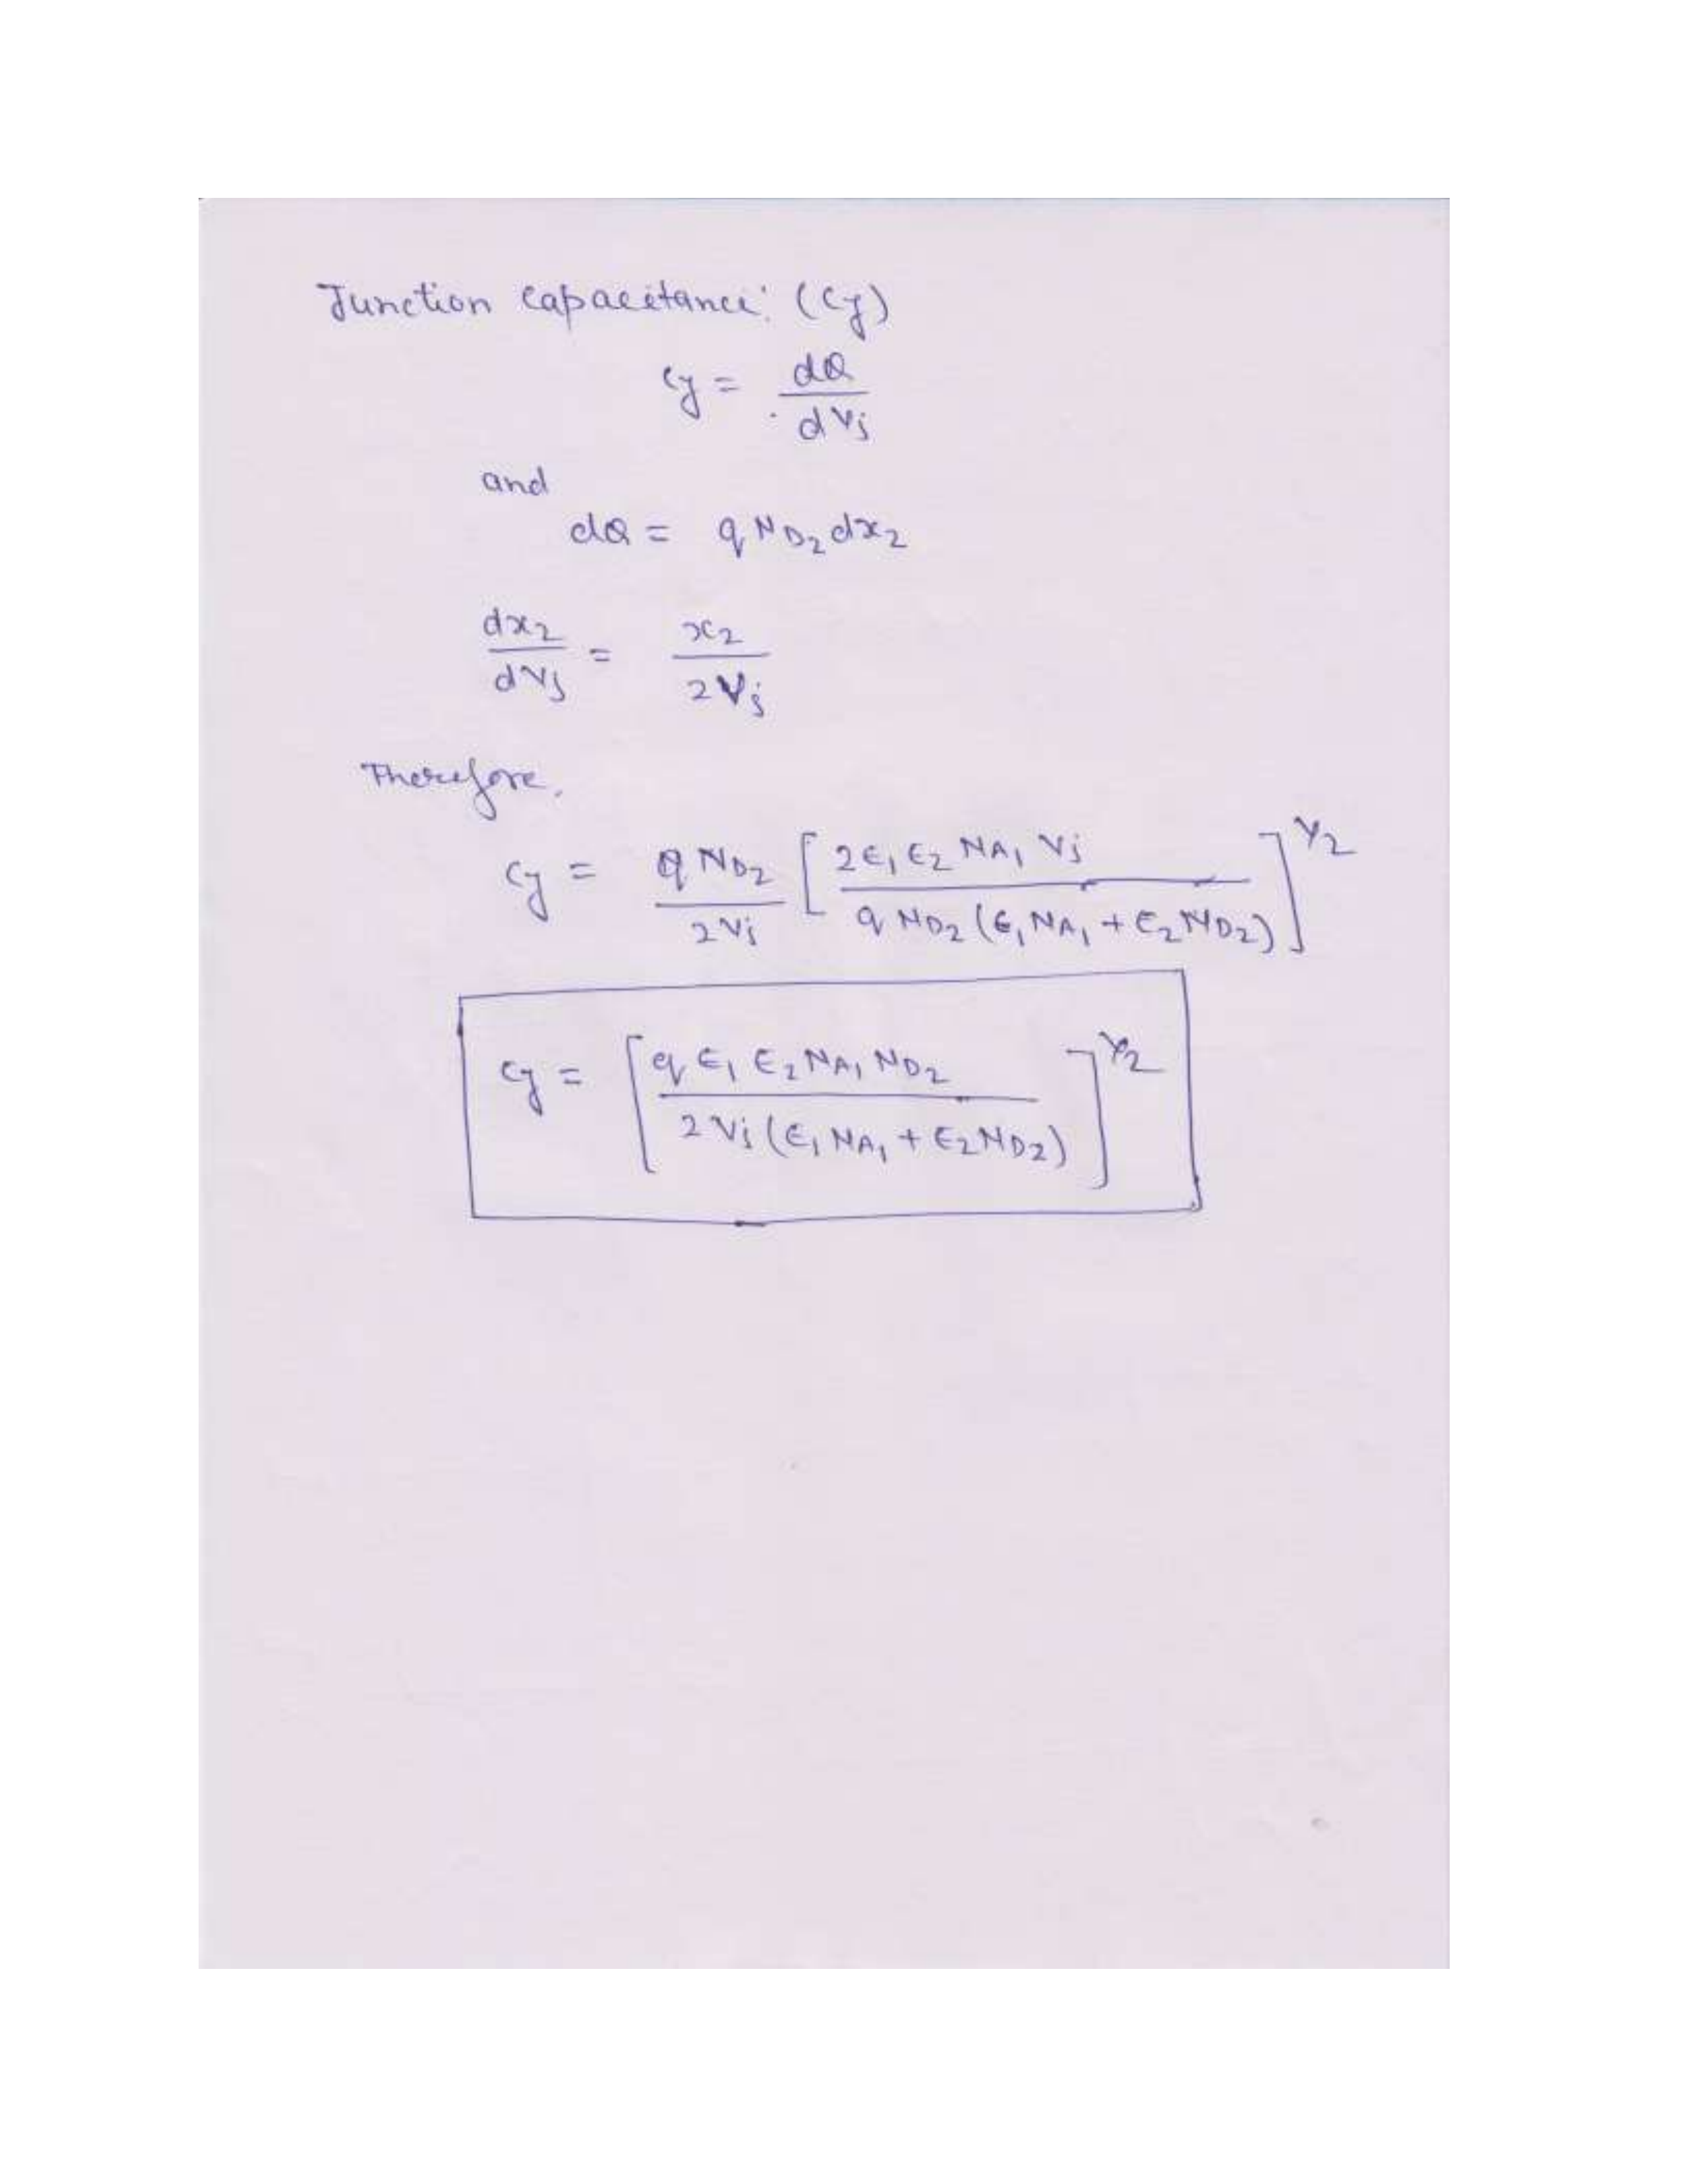 Junction capacitance: (CJ)
CJ = dQ / dVj
and
dQ = q ND2 dx2
dx2 / dVj = x2 / 2Vj
Therefore,
CJ = q ND2 / 2Vj [ 2ε1 ε2 NA1 Vj / q ND2 (ε1 NA1 + ε2 ND2) ]^1/2
CJ = [ q ε1 ε2 NA1 ND2 / 2Vj (ε1 NA1 + ε2 ND2) ]^1/2